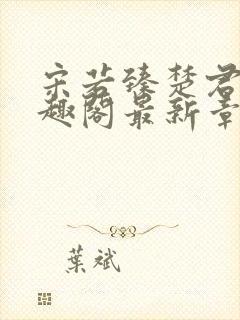 宋若臻楚君
趣阁最新章
葉斌